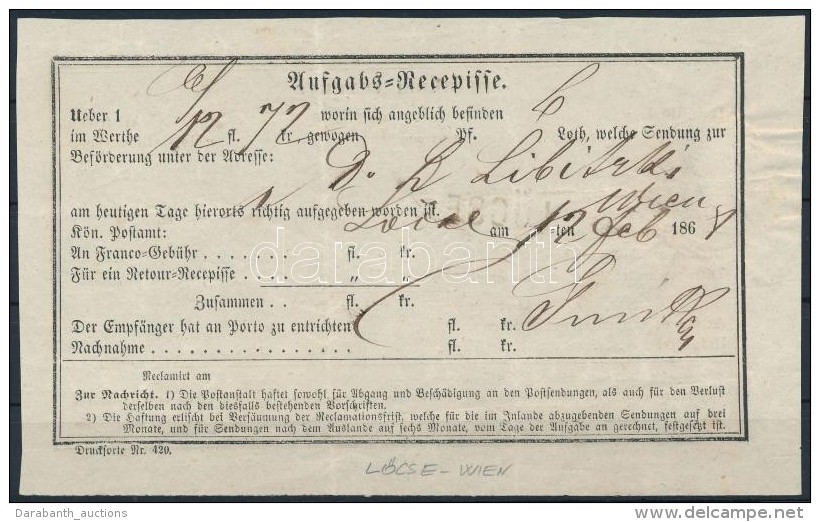 Aufgabs=Recepisse.
Ueber 1 worin sich angeblich befinden
im Werthe 12 fl. 72 kr. gewogen Pf. Loth, welche Sendung zur
Beförderung unter der Adresse:
Wien
am heutigen Tage hierorts richtig aufgegeben worden ist.
Kön. Postamt: am 12 ten Feb 186
An Franco=Gebühr . . . . . . . fl. kr.
Für ein Retour=Recepisse . . . . „ „
Zusammen . . fl. kr.
Der Empfänger hat an Porto zu entrichten fl. kr.
Nachnahme . . . . . . . . . . . . . . . . fl. kr.
Reclamirt am
Zur Nachricht. 1) Die Postanstalt haftet sowohl für Abgang und Beschädigung an den Postsendungen, als auch für den Verlust
derselben nach den diesfalls bestehenden Vorschriften.
2) Die Haftung erlischt bei Versäumung der Reclamationsfrist, welche für die im Inlande abzugebenden Sendungen auf drei
Monate, und für Sendungen nach dem Auslande auf sechs Monate, vom Tage der Aufgabe an gerechnet, festgesetzt ist.
Drucksorte Nr. 420.
LŐCSE - WIEN
darabanth
Darabanth_auctions
delcampe.net